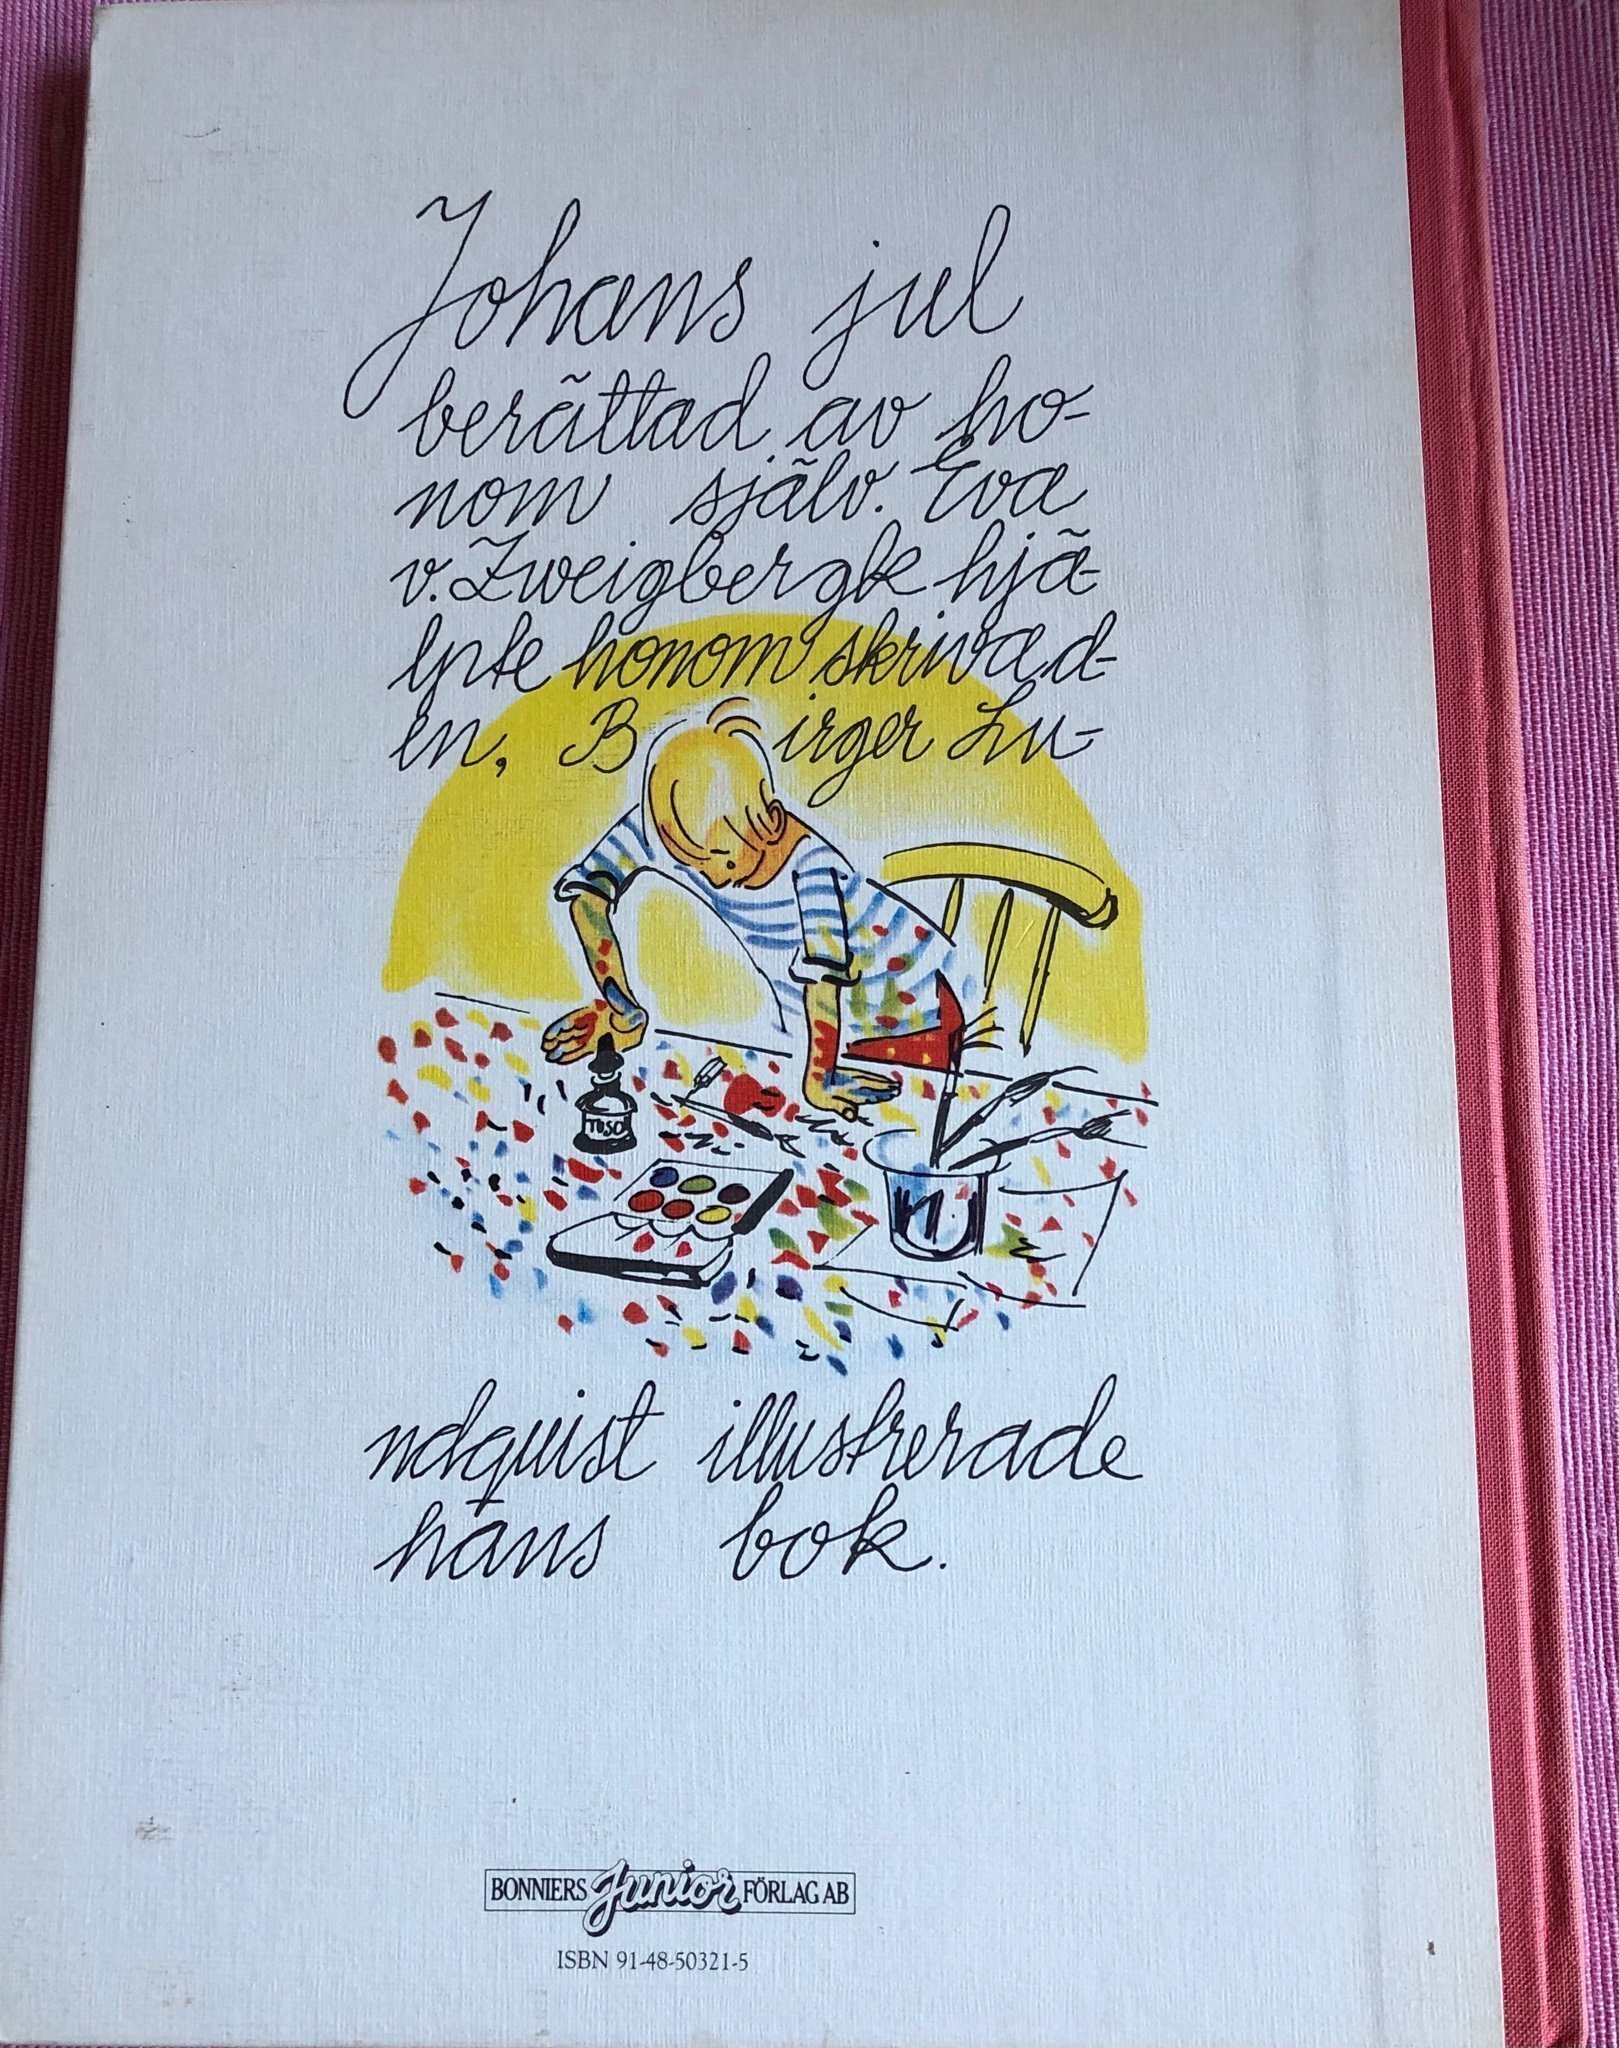 Johans jul
berättad av ho-
nom själv. Eva
v. Zweigbergk hjä-
lpte honom skriva d-
en, Birger Lu-
TUSCH
ndquist illustrerade
hans bok.
BONNIERS Junior FÖRLAG AB
ISBN 91-48-50321-5